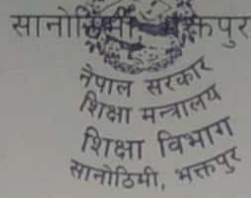 सानोठिमी, भक्तपुर
नेपाल सरकार
शिक्षा मन्त्रालय
शिक्षा विभाग
सानोठिमी, भक्तपुर